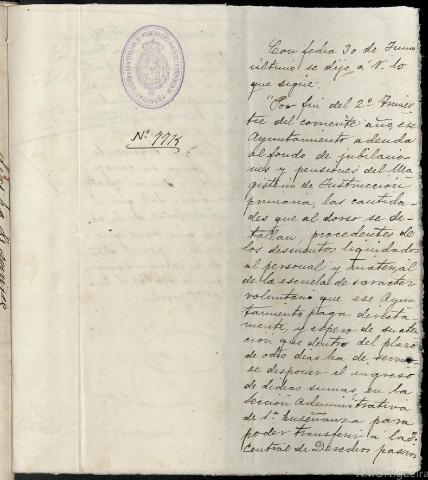 Nº 993
Con fecha 30 de Junio
último se dijo a V. lo
que sigue:
"Por fin del 2º Trimes
tre del corriente año, ese
Ayuntamiento adeuda
al fondo de jubilacio-
nes y pensiones del Ma
gisterio de Instrucción
primaria, las cantida-
des que al dorso se de-
tallan, procedentes de
los descuentos liquidados
al personal y material
de la escuela de caracter
voluntario que ese Ayun-
tamiento paga directa-
mente, y espero de su aten
ción que dentro del plazo
de ocho días ha de servir
se disponer el ingreso
de dichas sumas, en la
Sección Administrativa
de 1ª Enseñanza para
poder transferir á la J.
Central de Derechos pasivos